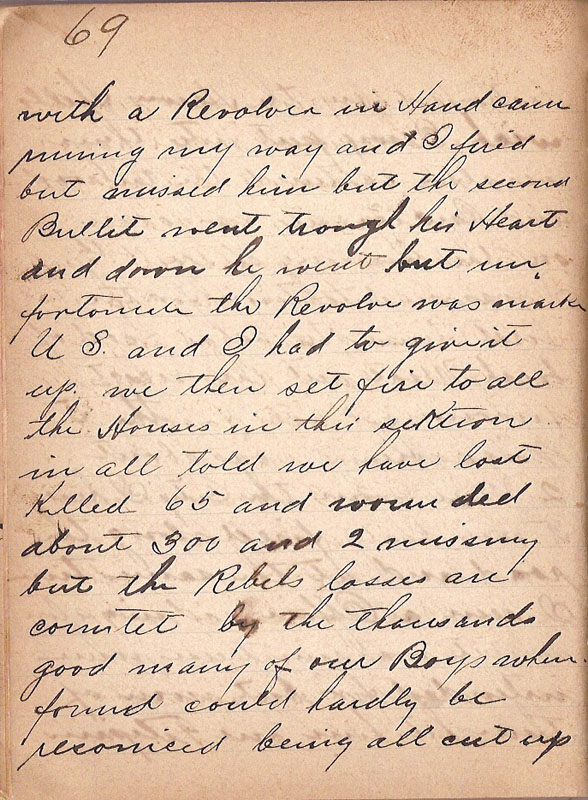 69
with a Revolver in Hand came
runing my way and I fired
but missed him but the second
Bullit went trough his Heart
and down he went but un,
fortunate the Revolve was mark
U S. and I had to give it
up. we then set fire to all
the Houses in this sektion
in all told we have lost
Killed 65 and wounded
about 300 and 2 missing
but the Rebels losses are
comtet by the thousands
good many of our Boys when
found could hardly be
reconiced being all cut up